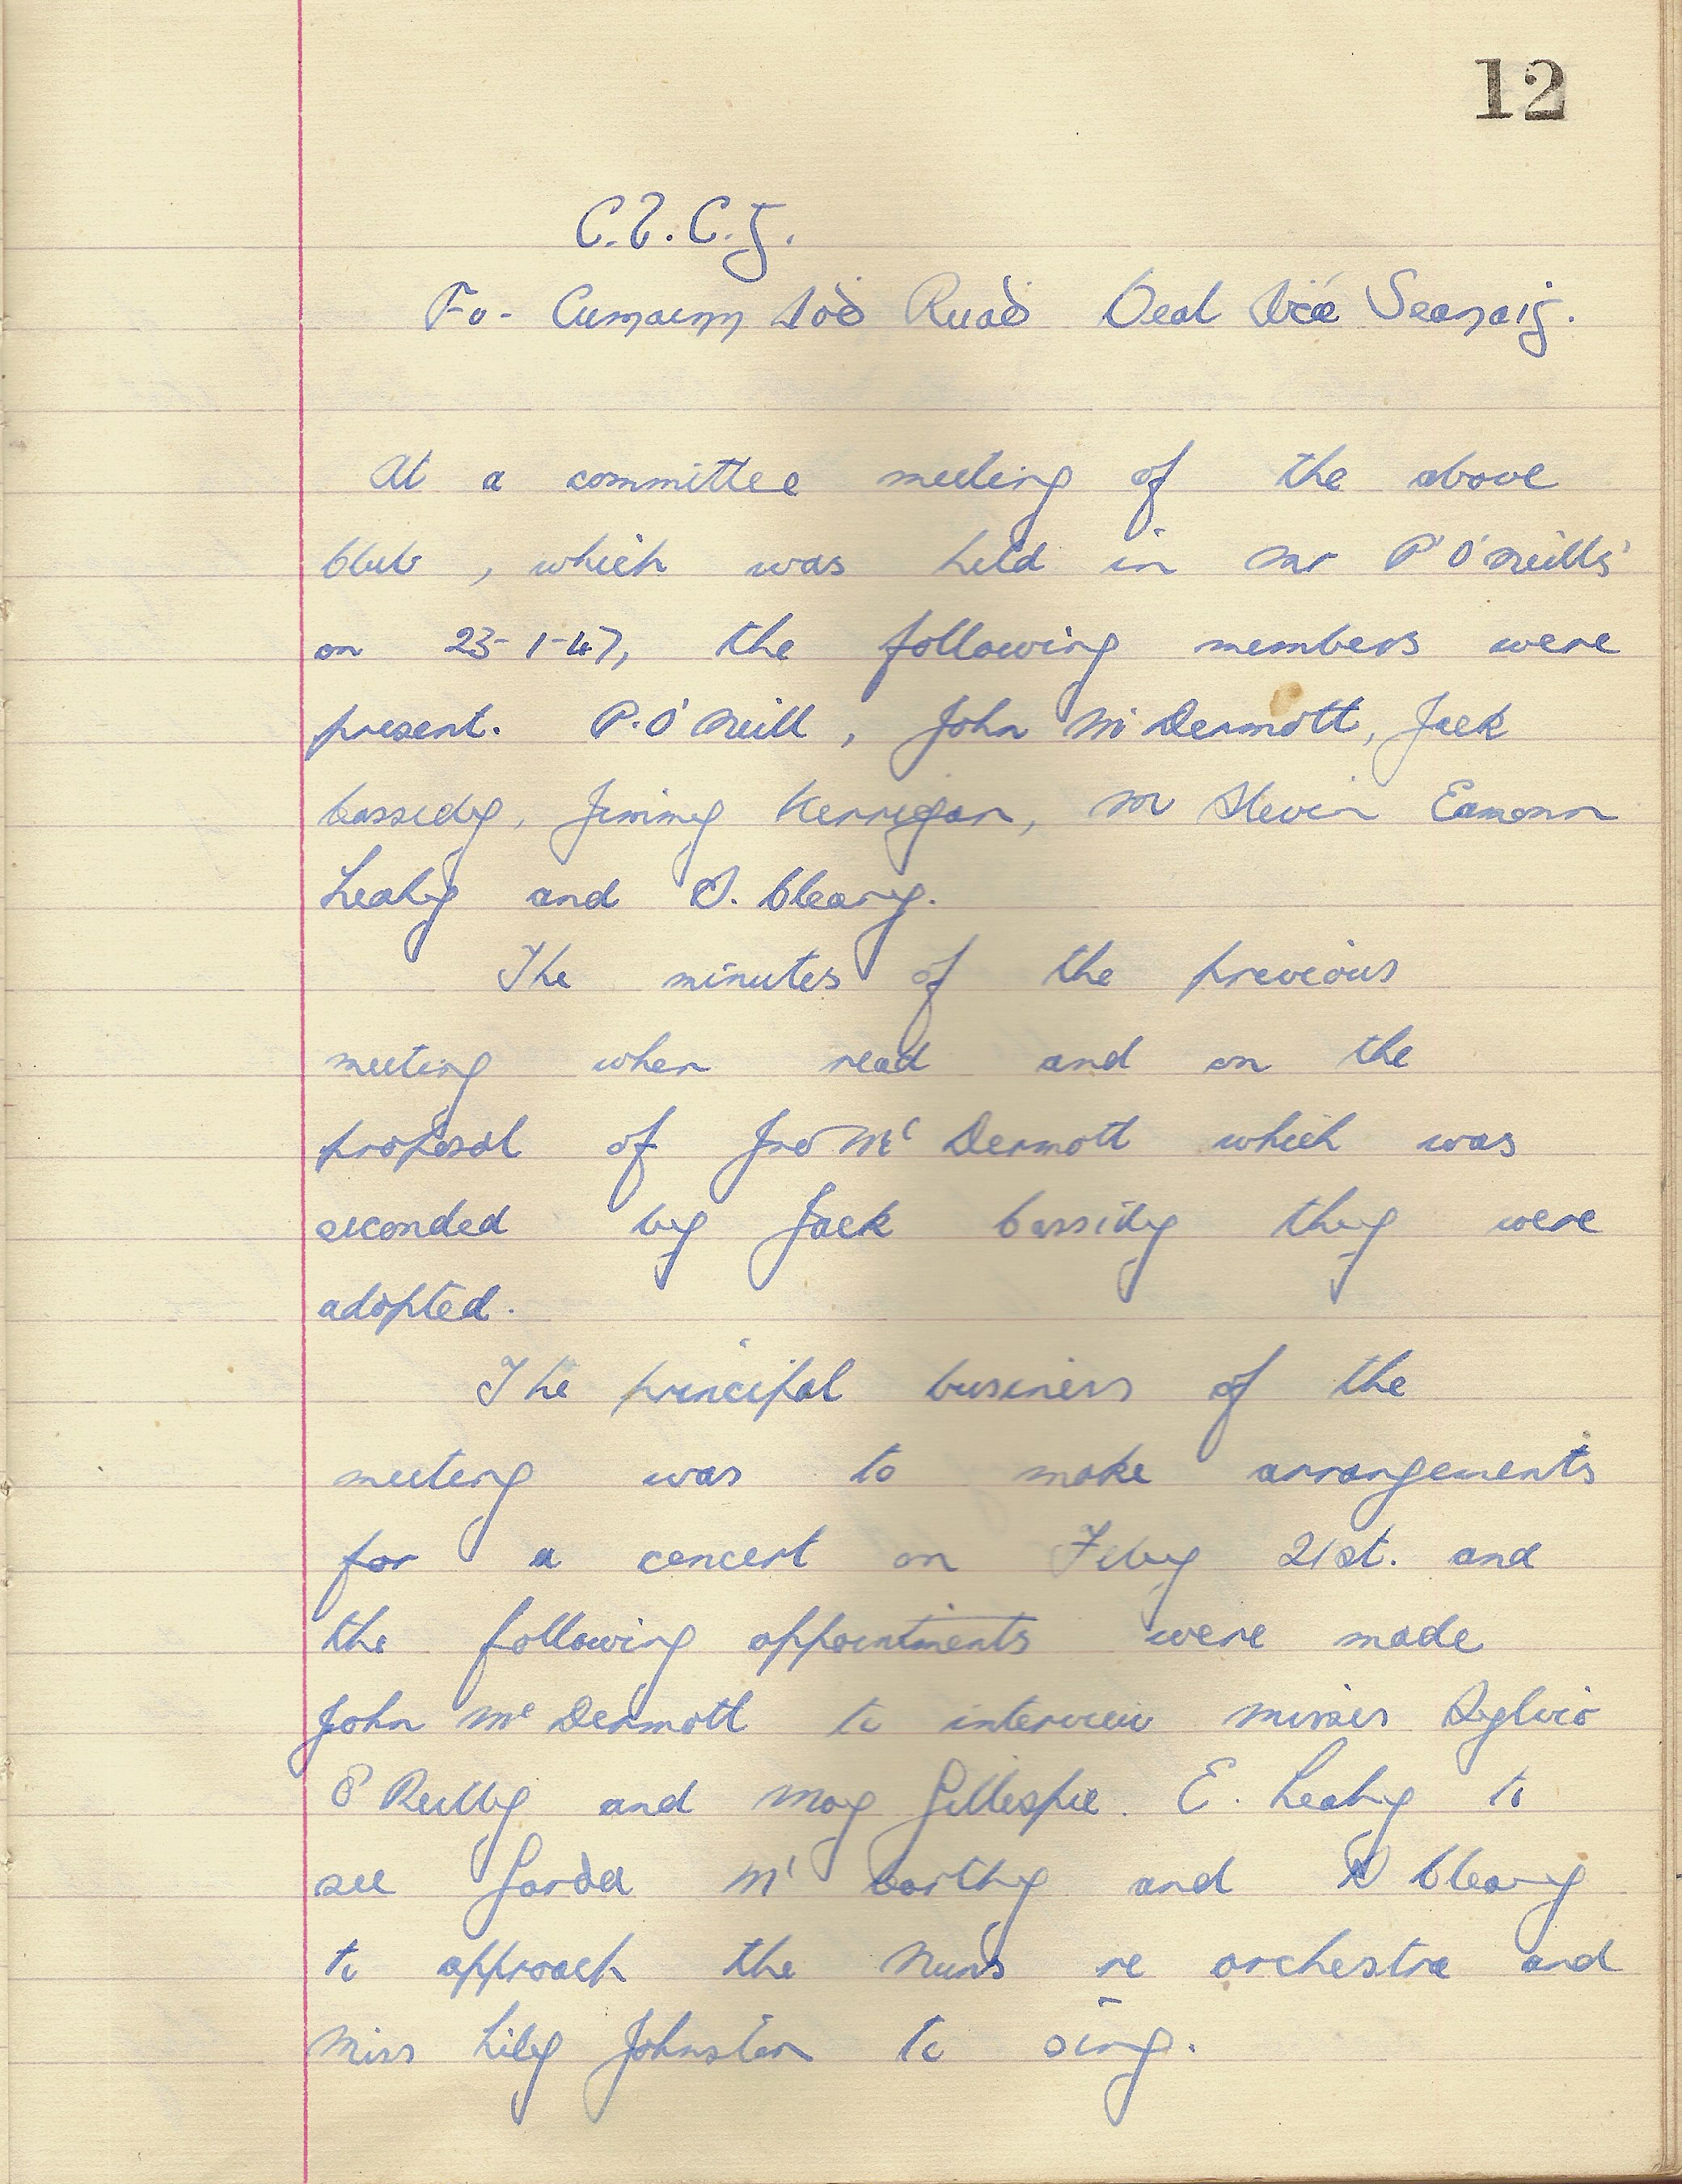 12
C.L.C.G.
Fo-Cumainn Aoḋ Ruaḋ Beal Áṫa Seanaiġ.
At a committee meeting of the above
Club, which was held in Mr P O'Neills'
on 23-1-47, the following members were
present. P. O'Neill, John McDermott, Jack
Cassidy, Jimmy Kerrigan, M Slevin Eamonn
Leahy and Cleary.
The minutes of the previous
meeting when read and on the
proposal of Jno McDermott which was
seconded by Jack Cassidy they were
adopted.
The principal business of the
meeting was to make arrangements
for a concert on Feby 21st. and
the following appointments were made
John McDermott to interview Misses Sylvia
O'Reilly and May Gillespie. E. Leahy to
see Garda McCarthy and Cleary
to approach the Nuns re orchestra and
Miss Lily Johnston to sing.